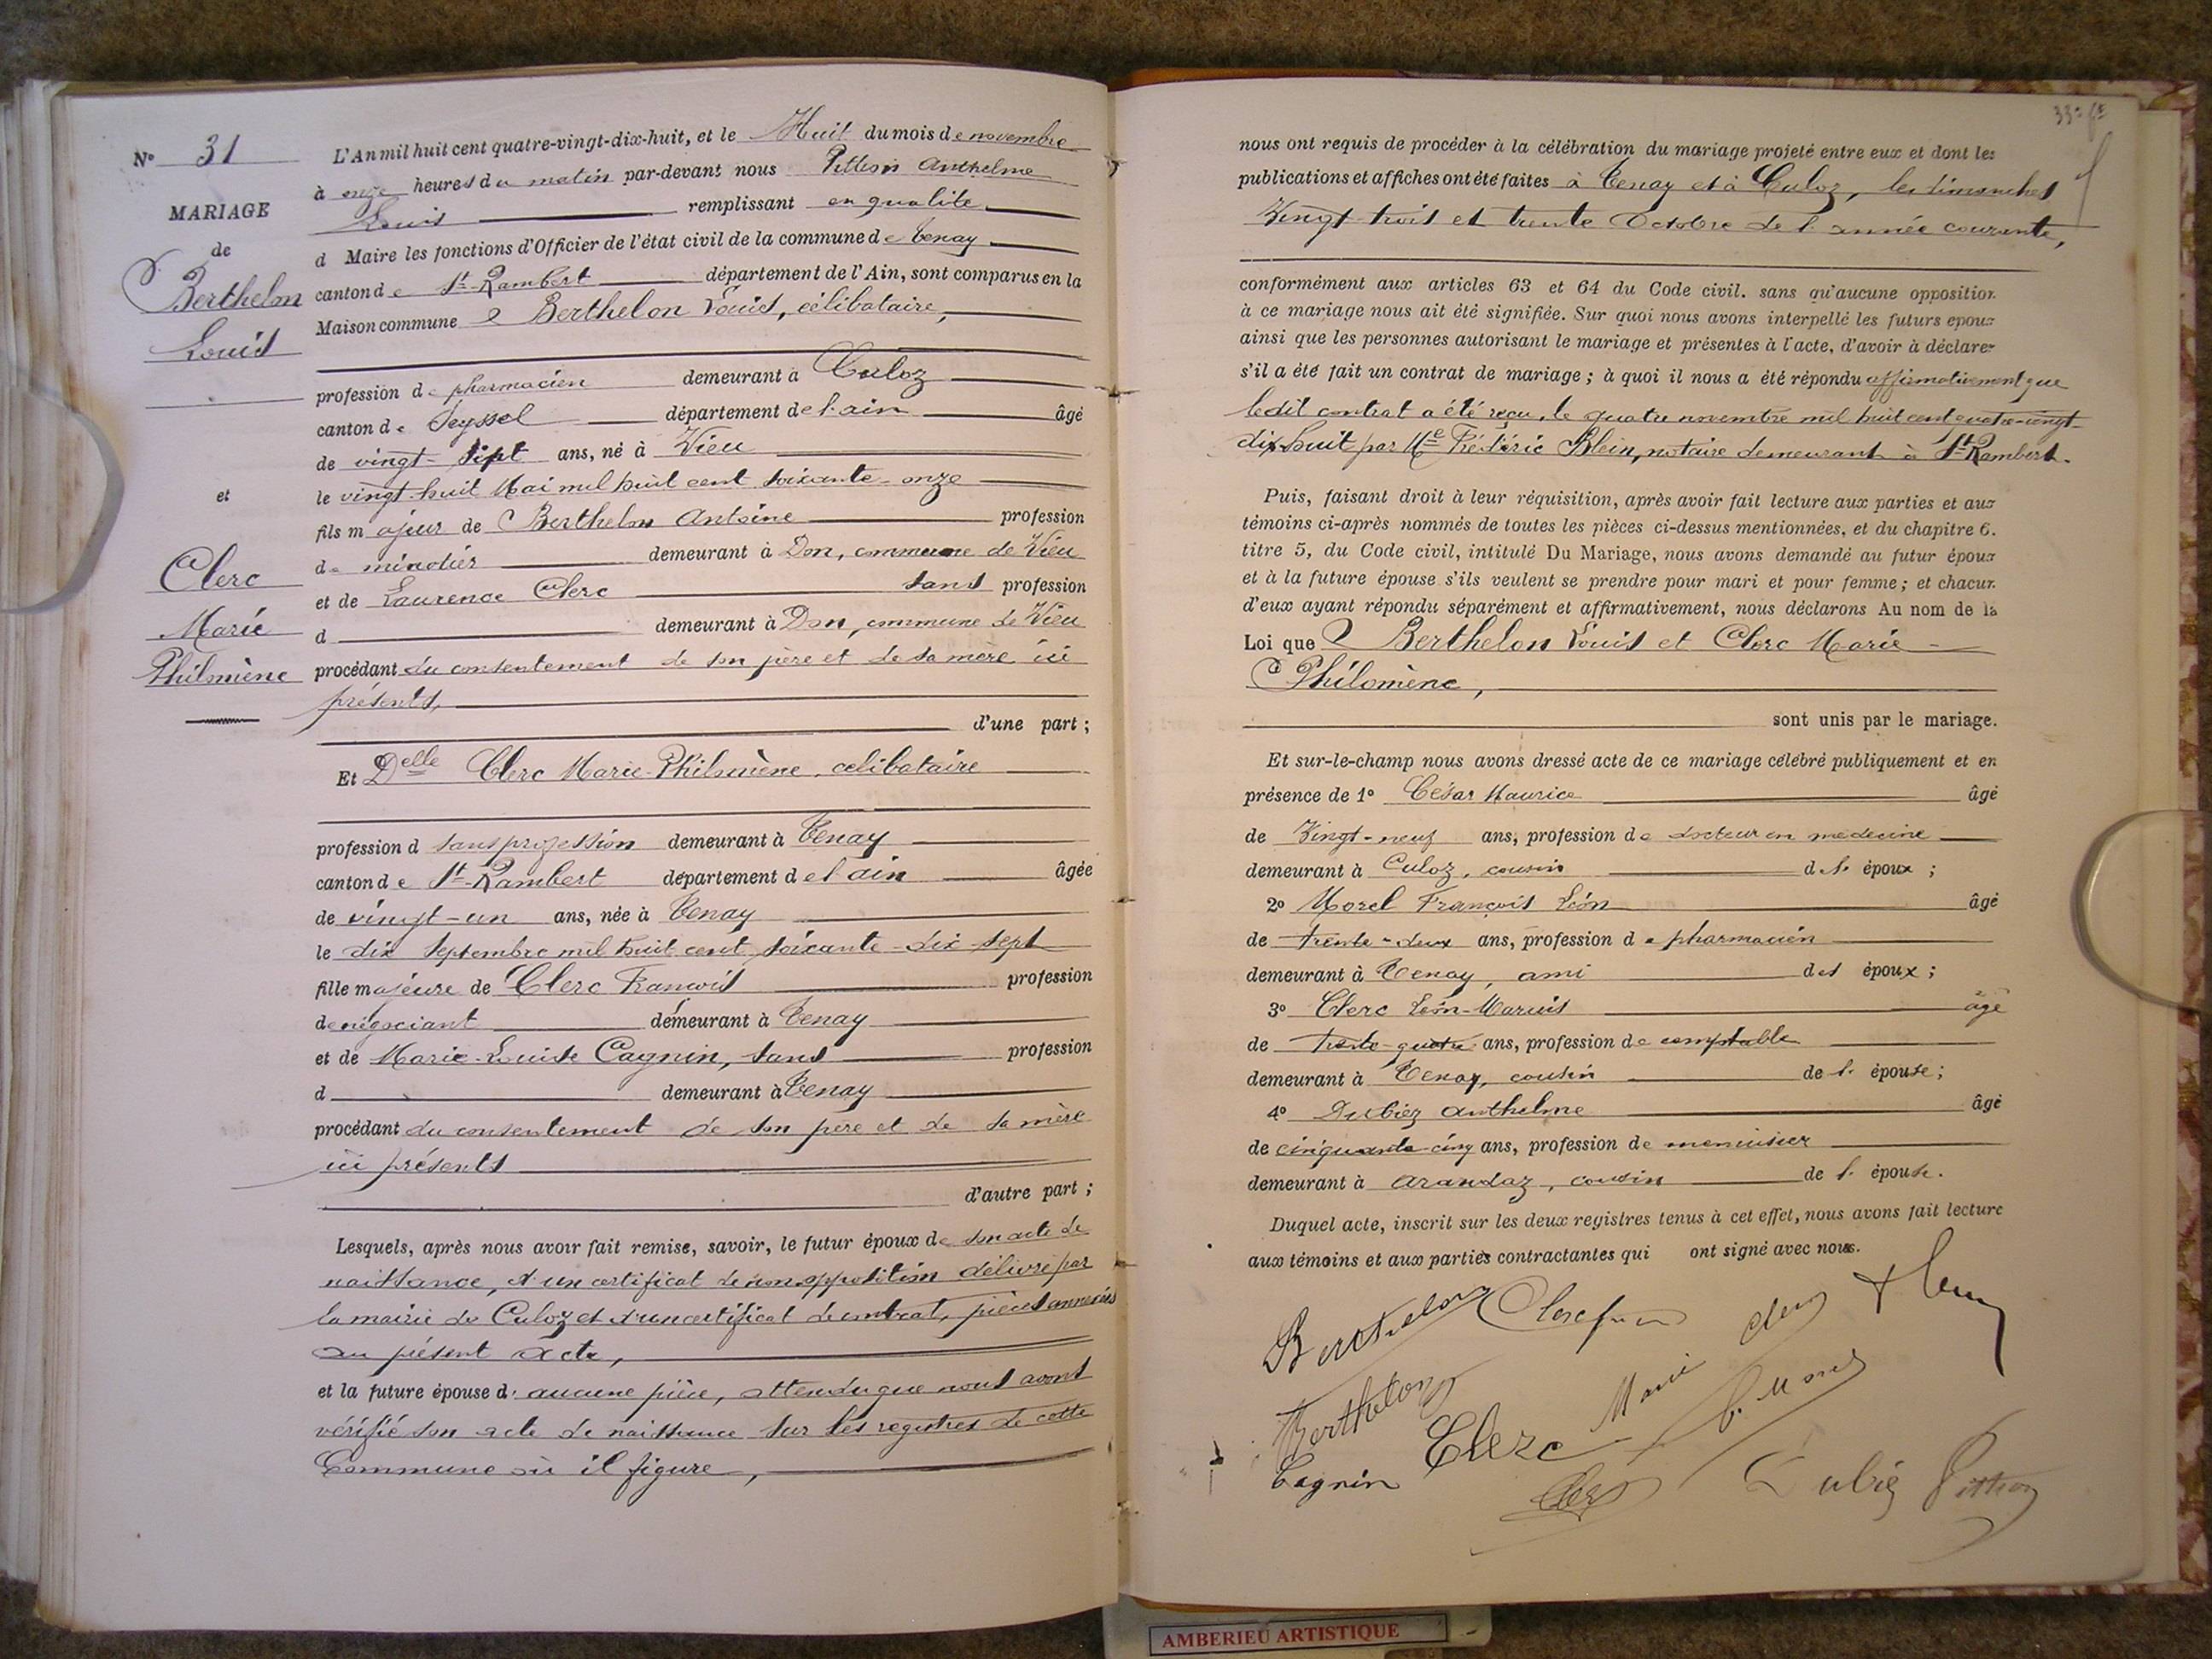 N° 31
MARIAGE
de
Berthelon
Louis
et
Clerc
Marie
Philomène
L'An mil huit cent quatre-vingt-dix-huit, et le Huit du mois de novembre
à onze heures du matin par-devant nous Anthelme
Louis remplissant en qualité
d Maire les fonctions d'Officier de l'état civil de la commune de Tenay
canton de St-Rambert département de l'Ain, sont comparus en la
Maison commune Berthelon Louis, célibataire,
profession de pharmacien demeurant à Culoz
canton de Seyssel département de l'ain âgé
de vingt-sept ans, né à Vieu
le vingt-huit Mai mil huit cent soixante-onze
fils majeur de Berthelon Antoine profession
de minotier demeurant à Don, commune de Vieu
et de Laurence Clerc sans profession
d demeurant à Don, commune de Vieu
procédant du consentement de son père et de sa mère ici
présents,
d'une part ;
Et Delle Clerc Marie-Philomène, célibataire
profession d sans profession demeurant à Tenay
canton de St-Rambert département de l'ain âgée
de vingt-un ans, née à Tenay
le dix septembre mil huit cent soixante-dix-sept
fille majeure de Clerc François profession
de négociant demeurant à Tenay
et de Marie-Louise Cagnin, sans profession
d demeurant à Tenay
procédant du consentement de son père et de sa mère
ici présents
d'autre part ;
Lesquels, après nous avoir fait remise, savoir, le futur époux de son acte de
naissance, d'un certificat de non opposition délivré par
la mairie de Culoz et d'un certificat de contrat, pièces annexées
au présent acte,
et la future épouse d'aucune pièce, attendu que nous avons
vérifié son acte de naissance sur les registres de cette
Commune où il figure,
nous ont requis de procéder à la célébration du mariage projeté entre eux et dont les
publications et affiches ont été faites à Tenay et à Culoz, les dimanches
Vingt-trois et trente Octobre de l'année courante,
conformément aux articles 63 et 64 du Code civil. sans qu'aucune opposition
à ce mariage nous ait été signifiée. Sur quoi nous avons interpellé les futurs époux
ainsi que les personnes autorisant le mariage et présentes à l'acte, d'avoir à déclarer
s'il a été fait un contrat de mariage ; à quoi il nous a été répondu affirmativement que
ledit contrat a été reçu, le quatre novembre mil huit cent quatre-vingt-
dix-huit par Me Frédéric Blein, notaire demeurant à St-Rambert.
Puis, faisant droit à leur réquisition, après avoir fait lecture aux parties et aux
témoins ci-après nommés de toutes les pièces ci-dessus mentionnées, et du chapitre 6.
titre 5, du Code civil, intitulé Du Mariage, nous avons demandé au futur époux
et à la future épouse s'ils veulent se prendre pour mari et pour femme ; et chacun
d'eux ayant répondu séparément et affirmativement, nous déclarons Au nom de la
Loi que Berthelon Louis et Clerc Marie
Philomène,
sont unis par le mariage.
Et sur-le-champ nous avons dressé acte de ce mariage célébré publiquement et en
présence de 1° César Maurice âgé
de Vingt-neuf ans, profession de docteur en médecine
demeurant à Culoz, cousin d l' époux ;
2° Morel François Léon âgé
de trente-deux ans, profession de pharmacien
demeurant à Tenay, ami des époux ;
3° Clerc Léon-Marius âgé
de trente-quatre ans, profession de comptable
demeurant à Tenay, cousin de l' épouse ;
4° Dubiez Anthelme âgé
de cinquante-cinq ans, profession de menuisier
demeurant à Arandaz, cousin de l' épouse.
Duquel acte, inscrit sur les deux registres tenus à cet effet, nous avons fait lecture
aux témoins et aux parties contractantes qui ont signé avec nous.
Berthelon
Berthelon
Clerc
Marie
Cagnin
AMBERIEU ARTISTIQUE